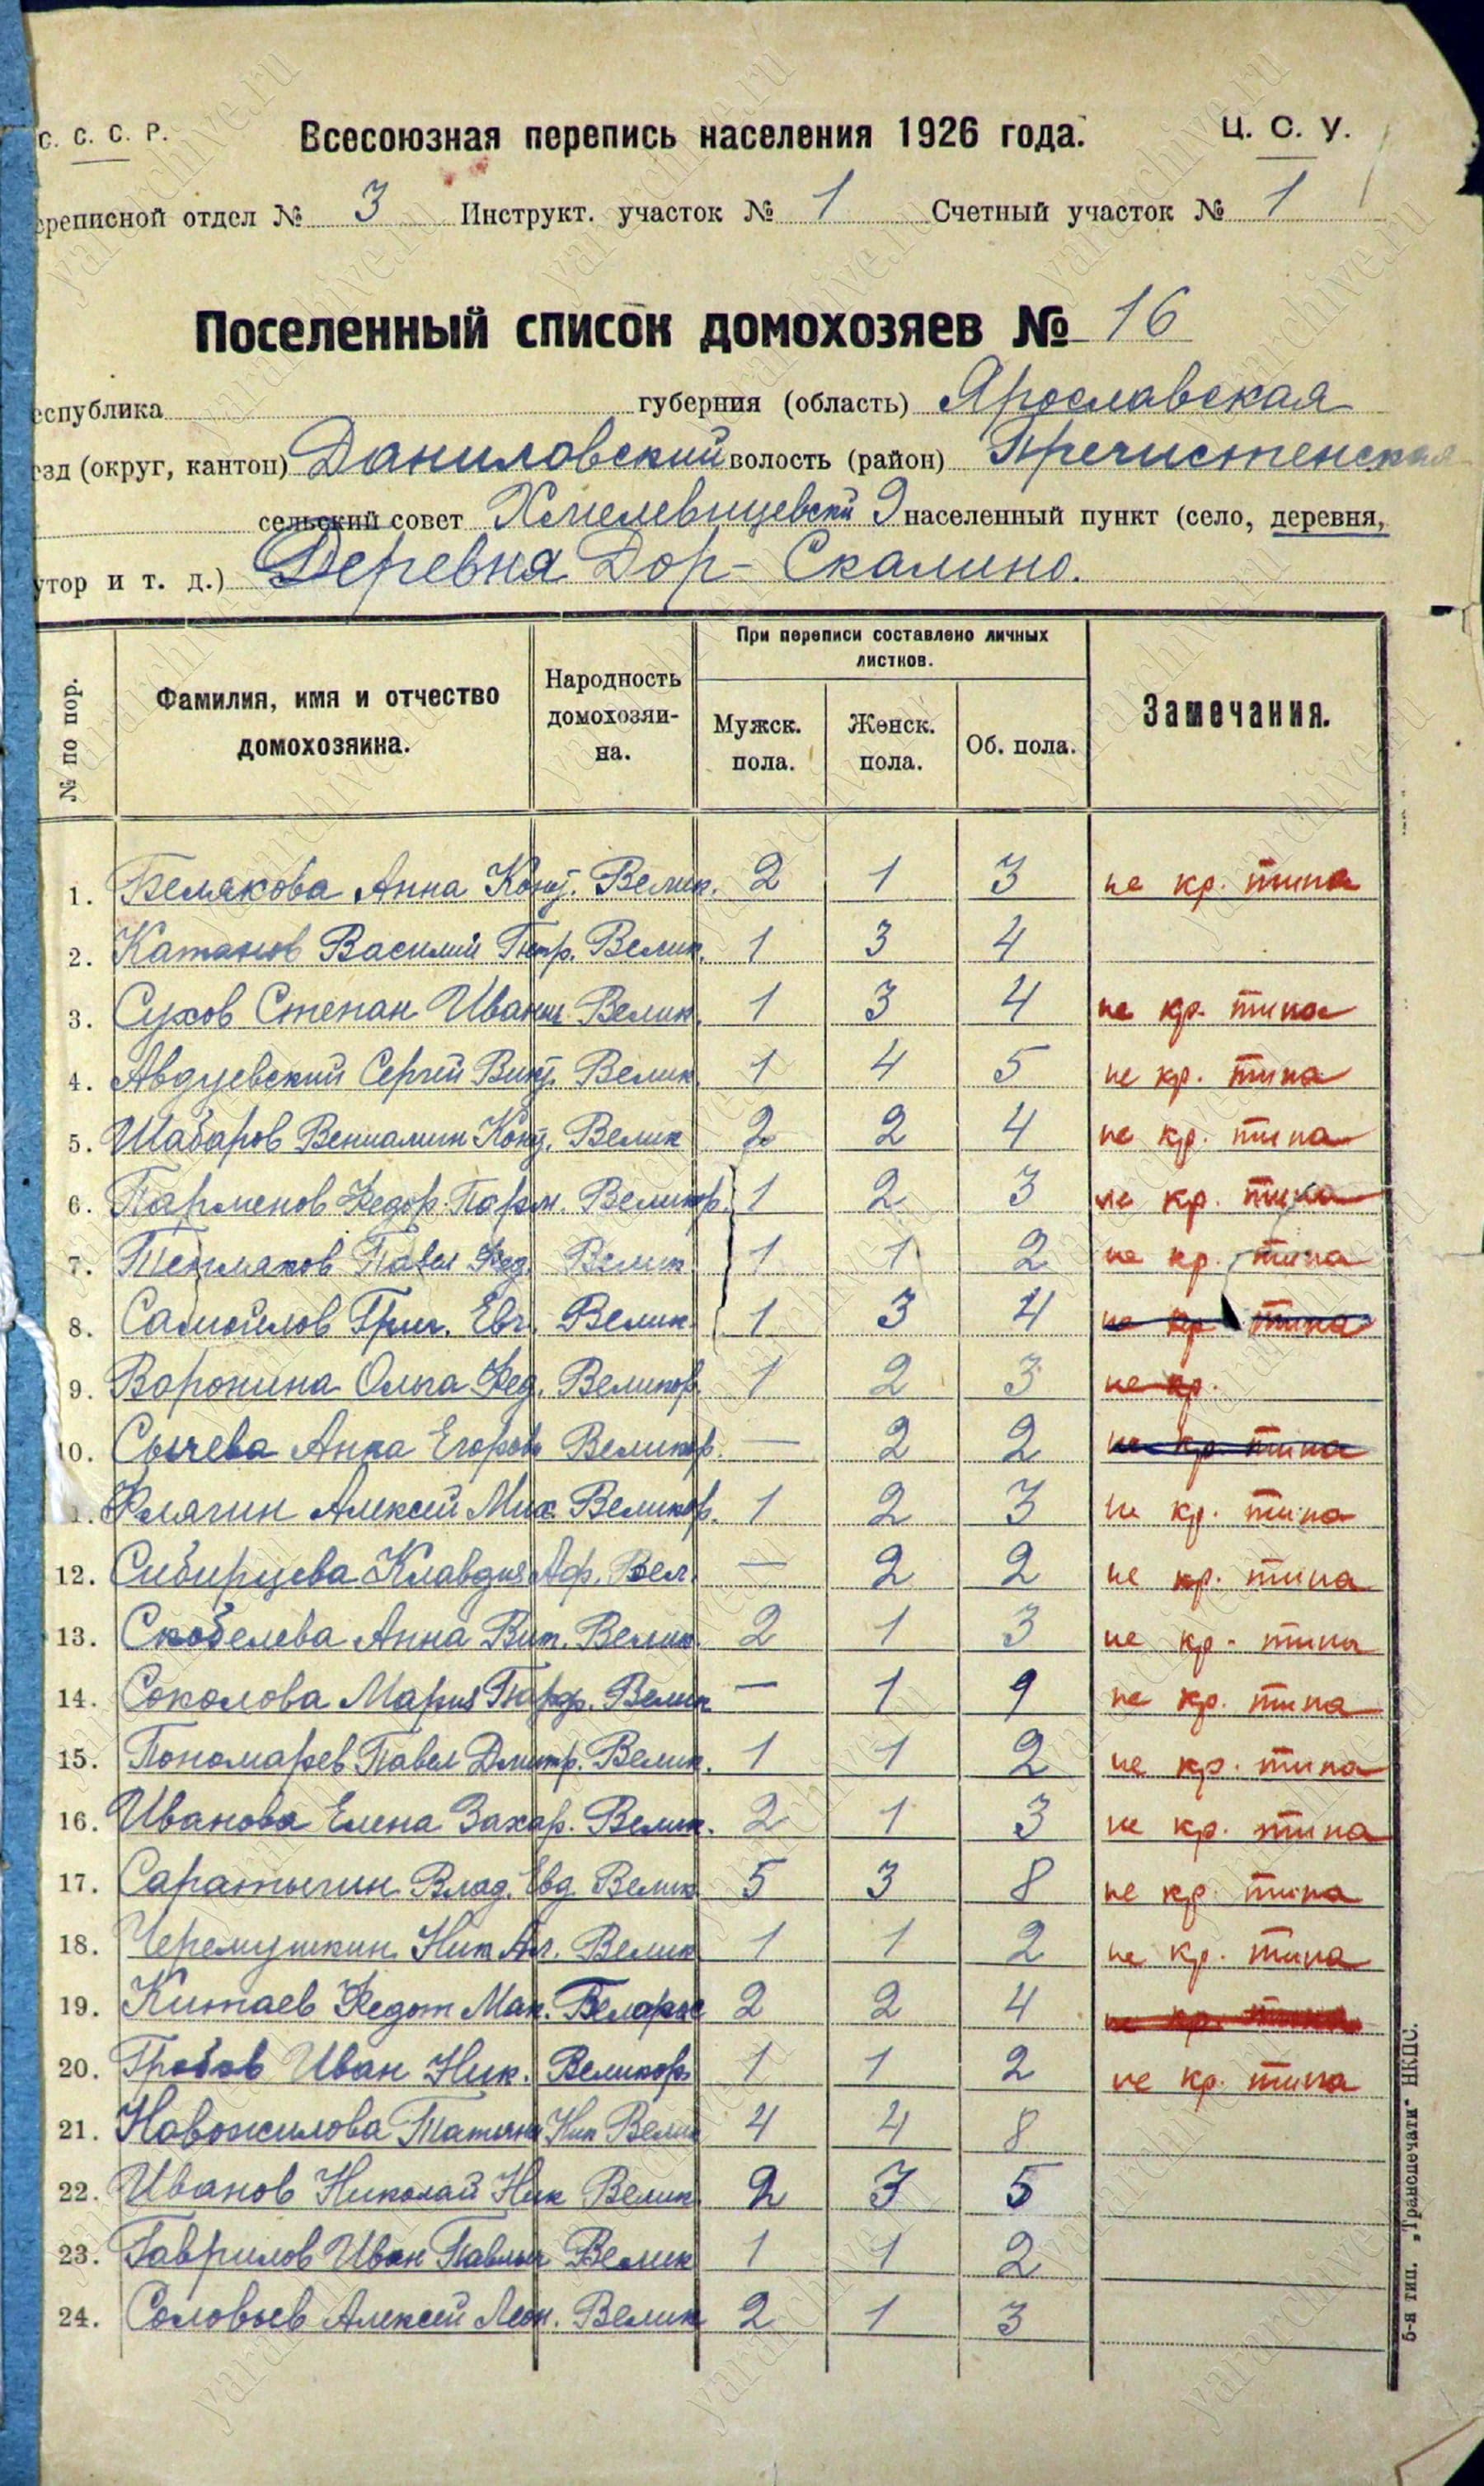 С. С. С. Р.
Всесоюзная перепись населения 1926 года.
Ц. С. У.
ереписной отдел № 3 Инструкт. участок № 1 Счетный участок № 1
Поселенный список домохозяев № 16
еспублика губерния (область) Ярославская
езд (округ, кантон) Даниловский волость (район) Пречистенская
сельский совет Хмелевицевский населенный пункт (село, деревня,
утор и т. д.) Деревня Дор-Скалино.
№ по пор.
Фамилия, имя и отчество домохозяина.
Народность домохозяи-на.
При переписи составлено личных листков.
Мужск. пола.
Женск. пола.
Об. пола.
Замечания.
1. Белякова Анна Конст. Велик. 2 1 3 не кр. типа
2. Катанов Василий Петр. Велик. 1 3 4
3. Сухов Степан Иваныч Велик. 1 3 4 не кр. типа
4. Авдуевский Сергей Викт. Велик 1 4 5 не кр. типа
5. Шабаров Вениамин Конст. Велик 2 2 4 не кр. типа
6. Парменов Федор Парм. Великор. 1 2 3 не кр. типа
7. Тепляков Павел Фед. Велик 1 1 2 не кр. типа
8. Самойлов Григ. Евг. Велик 1 3 4 не кр типа
9. Воронина Ольга Фед. Великор 1 2 3 не кр.
10. Сычева Анна Егоров Великор. — 2 2 не кр. типа
Клягин Алексей Мих. Великор. 1 2 3 не кр. типа
12. Сибирцева Клавдия Аф. Вел. — 2 2 не кр. типа
13. Скобелева Анна Вик. Велик. 2 1 3 не кр. типа
14. Соколова Мария Парф. Велик — 1 1 не кр. типа
15. Пономарев Павел Дмитр. Велик. 1 1 2 не кр. типа
16. Иванова Елена Захар. Велик. 2 1 3 не кр. типа
17. Саратыгин Влад. Евд. Велик 5 3 8 не кр. типа
18. Черемушкин Ник Ал. Велик 1 1 2 не кр. типа
19. Китаев Федот Мак. Белорус 2 2 4 не кр. типа
20. Гробов Иван Ник. Великор 1 1 2 не кр. типа
21. Новожилова Татьяна Ник Велик 4 4 8
22. Иванов Николай Ник Велик 2 3 5
23. Гаврилов Иван Павлыч Велик 1 1 2
24. Соловьев Алексей Леон. Велик 2 1 3
5-я тип. „Транспечати" НКПС.
yararchive.ru